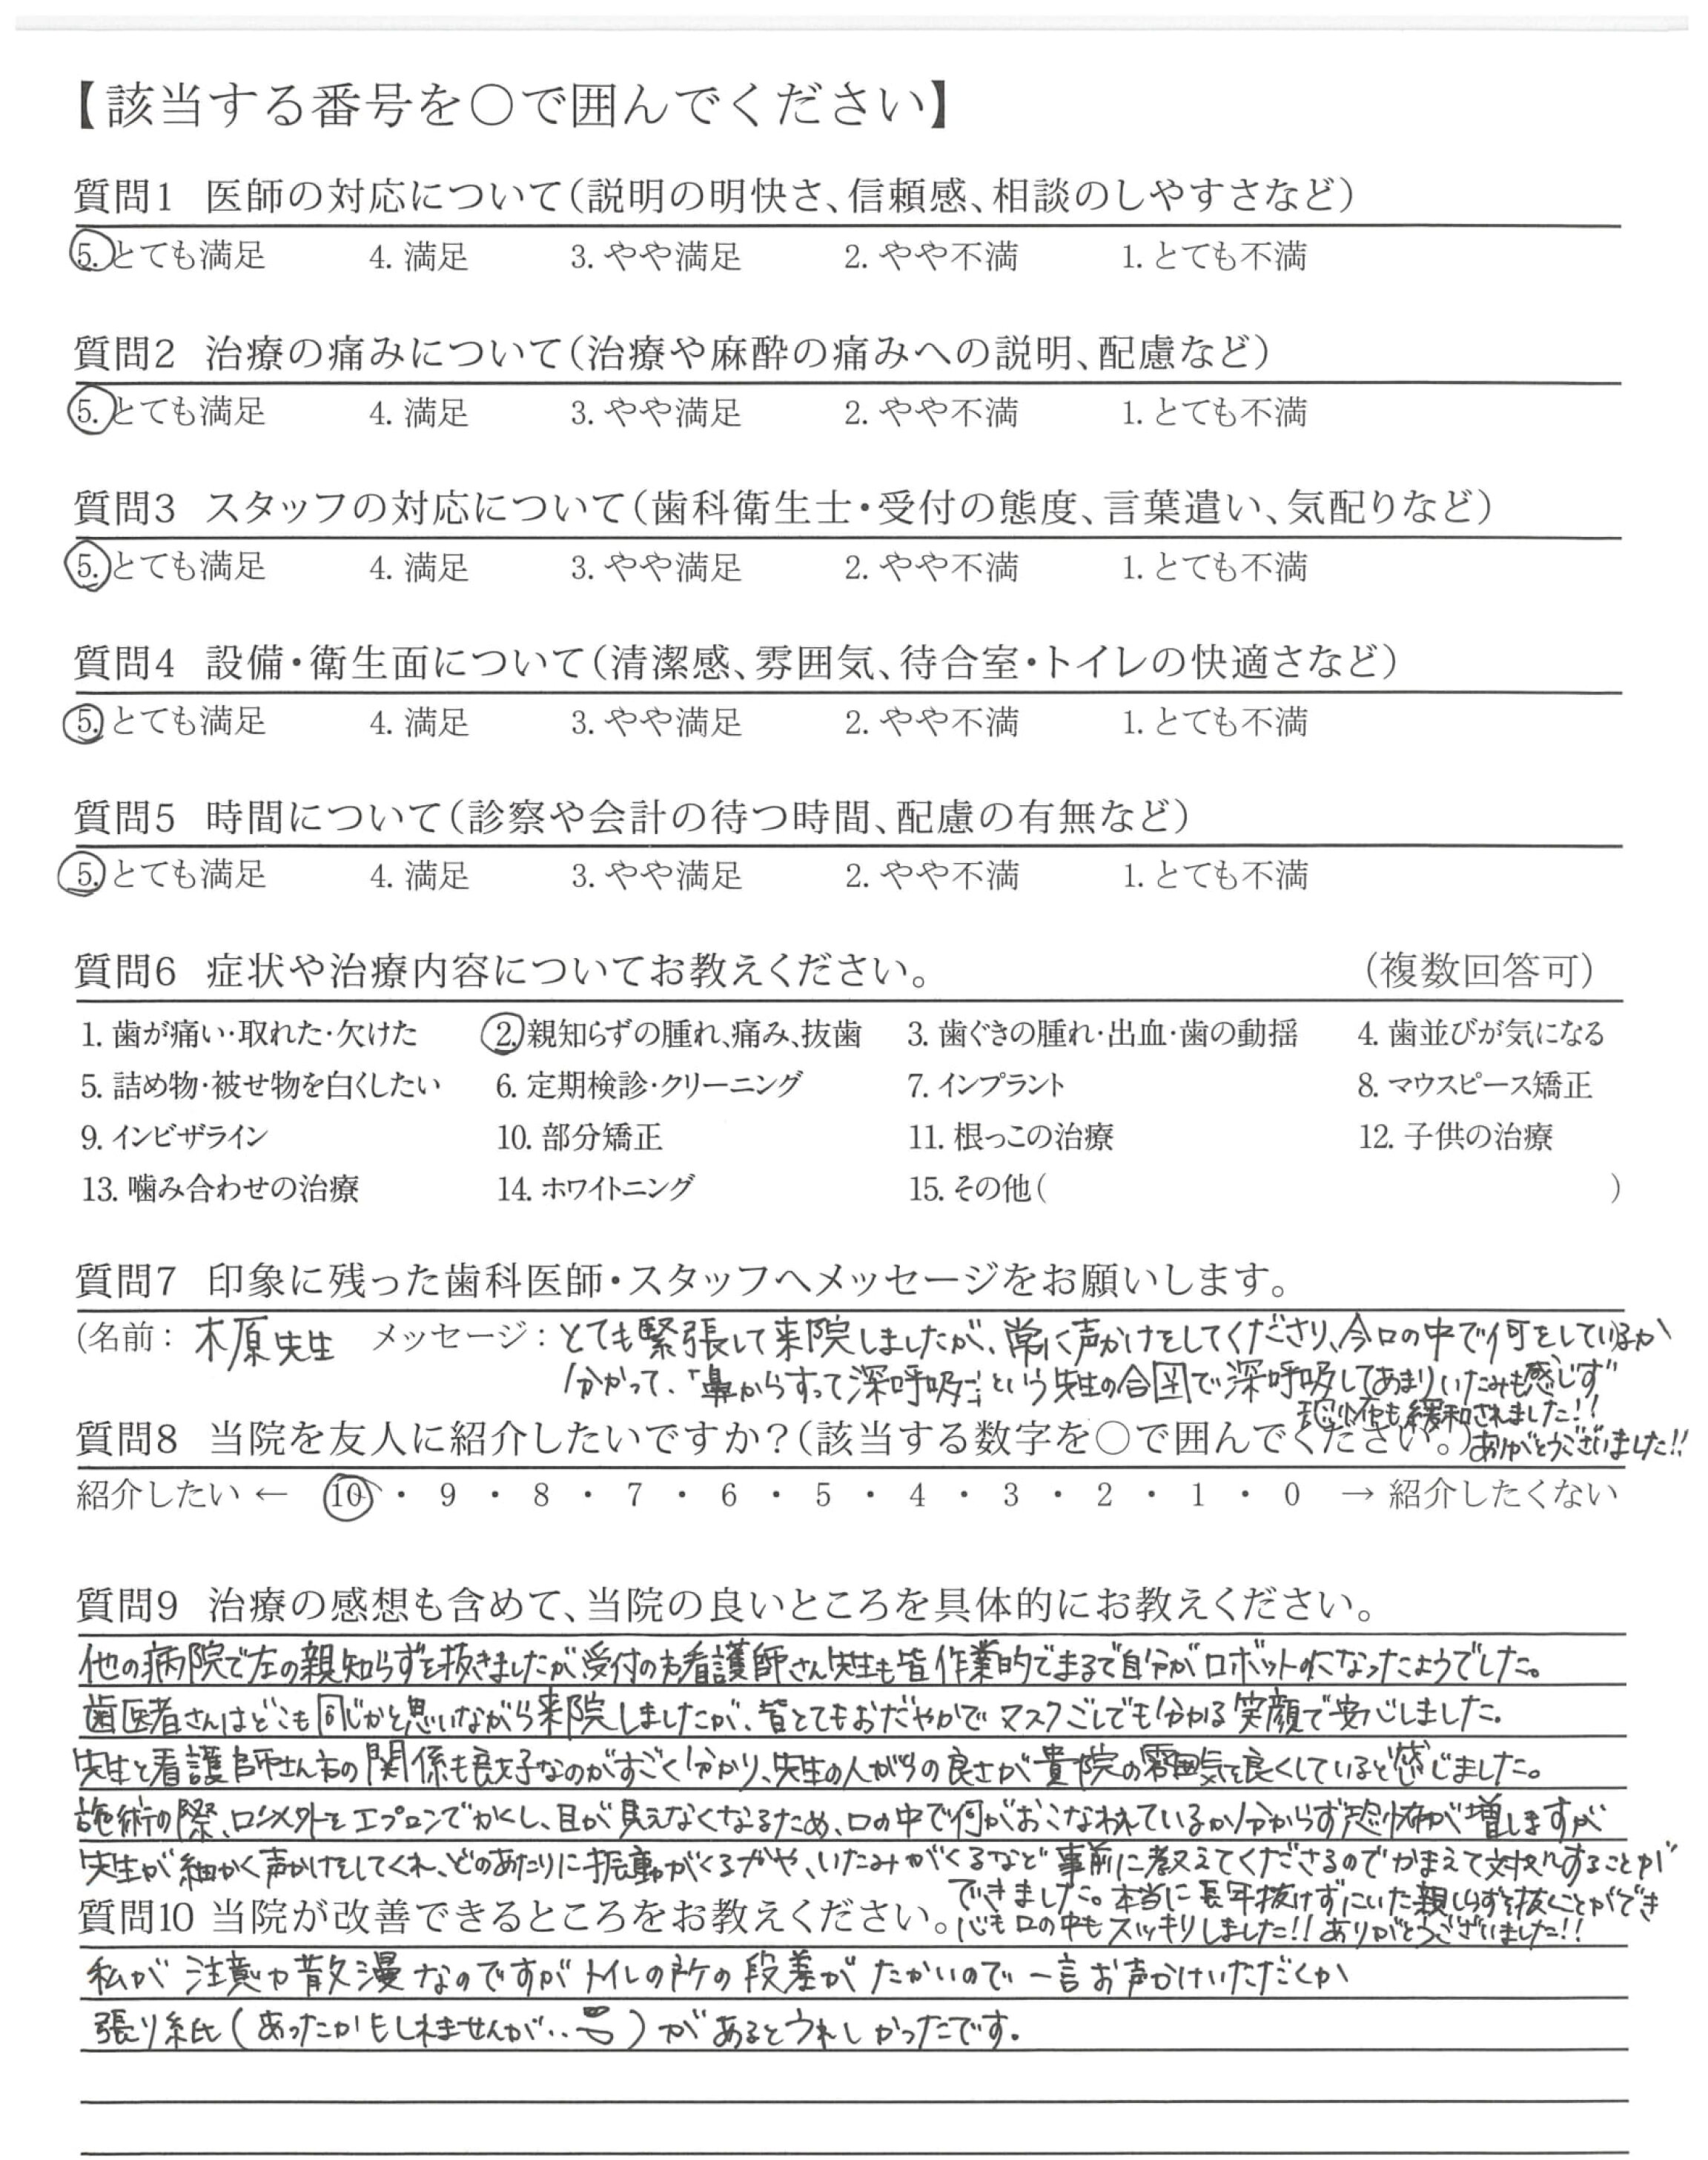 【該当する番号を〇で囲んでください】
質問1 医師の対応について(説明の明快さ、信頼感、相談のしやすさなど)
5. とても満足 4. 満足 3. やや満足 2. やや不満 1. とても不満
質問2 治療の痛みについて(治療や麻酔の痛みへの説明、配慮など)
5. とても満足 4. 満足 3. やや満足 2. やや不満 1. とても不満
質問3 スタッフの対応について(歯科衛生士・受付の態度、言葉遣い、気配りなど)
5. とても満足 4. 満足 3. やや満足 2. やや不満 1. とても不満
質問4 設備・衛生面について(清潔感、雰囲気、待合室・トイレの快適さなど)
5. とても満足 4. 満足 3. やや満足 2. やや不満 1. とても不満
質問5 時間について(診察や会計の待つ時間、配慮の有無など)
5. とても満足 4. 満足 3. やや満足 2. やや不満 1. とても不満
質問6 症状や治療内容についてお教えください。 (複数回答可)
1. 歯が痛い・取れた・欠けた 2. 親知らずの腫れ、痛み、抜歯 3. 歯ぐきの腫れ・出血・歯の動揺 4. 歯並びが気になる
5. 詰め物・被せ物を白くしたい 6. 定期検診・クリーニング 7. インプラント 8. マウスピース矯正
9. インビザライン 10. 部分矯正 11. 根っこの治療 12. 子供の治療
13. 噛み合わせの治療 14. ホワイトニング 15. その他( )
質問7 印象に残った歯科医師・スタッフへメッセージをお願いします。
(名前: 木原先生 メッセージ: とても緊張して来院しましたが、常に声かけをしてくださり、今口の中で何をしているか
分かって、「鼻からすって深呼吸」という先生の合図で深呼吸してあまりいたみも感じず
恐怖も緩和されました!!
ありがとうございました!!
質問8 当院を友人に紹介したいですか?(該当する数字を〇で囲んでください。)
紹介したい ← 10 ・ 9 ・ 8 ・ 7 ・ 6 ・ 5 ・ 4 ・ 3 ・ 2 ・ 1 ・ 0 → 紹介したくない
質問9 治療の感想も含めて、当院の良いところを具体的にお教えください。
他の病院で左の親知らずを抜きましたが受付の方看護師さん先生も皆作業的でまるで自分がロボットのになったようでした。
歯医者さんはどこも同じかと思いながら来院しましたが、皆とてもおだやかでマスクごしでも分かる笑顔で安心しました。
先生と看護師さん方の関係も良好なのがすごく分かり、先生の人がらの良さが貴院の雰囲気を良くしていると感じました。
施術の際、口以外をエプロンでかくし、目が見えなくなるため、口の中で何がおこなわれているか分からず恐怖が増しますが
先生が細かく声かけをしてくれ、どのあたりに振動がくるかや、いたみがくるなど事前に教えてくださるのでかまえて対処することが
できました。本当に長年抜けずにいた親しらずを抜くことができ
心も口の中もスッキリしました!!ありがとうございました!!
質問10 当院が改善できるところをお教えください。
私が注意力散漫なのですがトイレの所の段差がたかいので一言お声かけいただくか
張り紙(あったかもしれませんが‥)があるとうれしかったです。